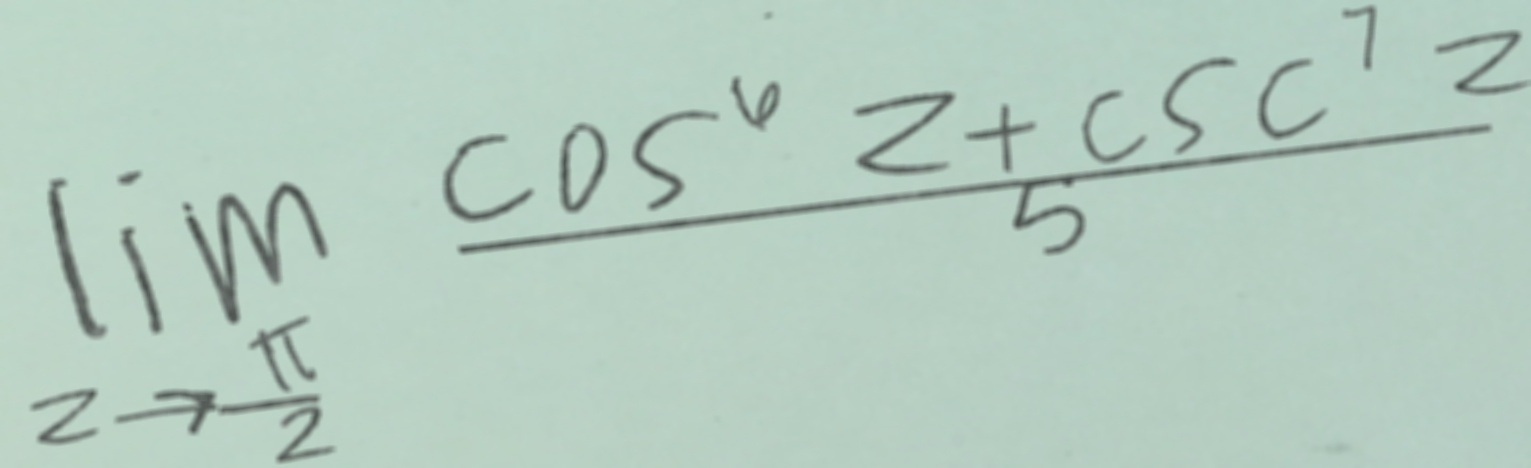 lim_{z→π/2} (cos⁶ z + csc⁷ z)/5